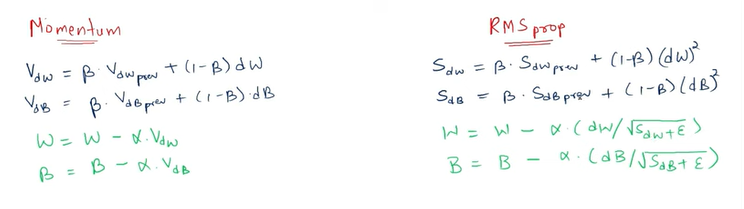 Momentum
V_dw = β · V_dw prev + (1-β) dW
V_dB = β · V_dB prev + (1-β) · dB
W = W - α · V_dw
B = B - α · V_dB
RMS prop
S_dw = β · S_dw prev + (1-β) (dW)²
S_dB = β · S_dB prev + (1-β) (dB)²
W = W - α · (dW/√(S_dw + ε))
B = B - α · (dB/√(S_dB + ε))